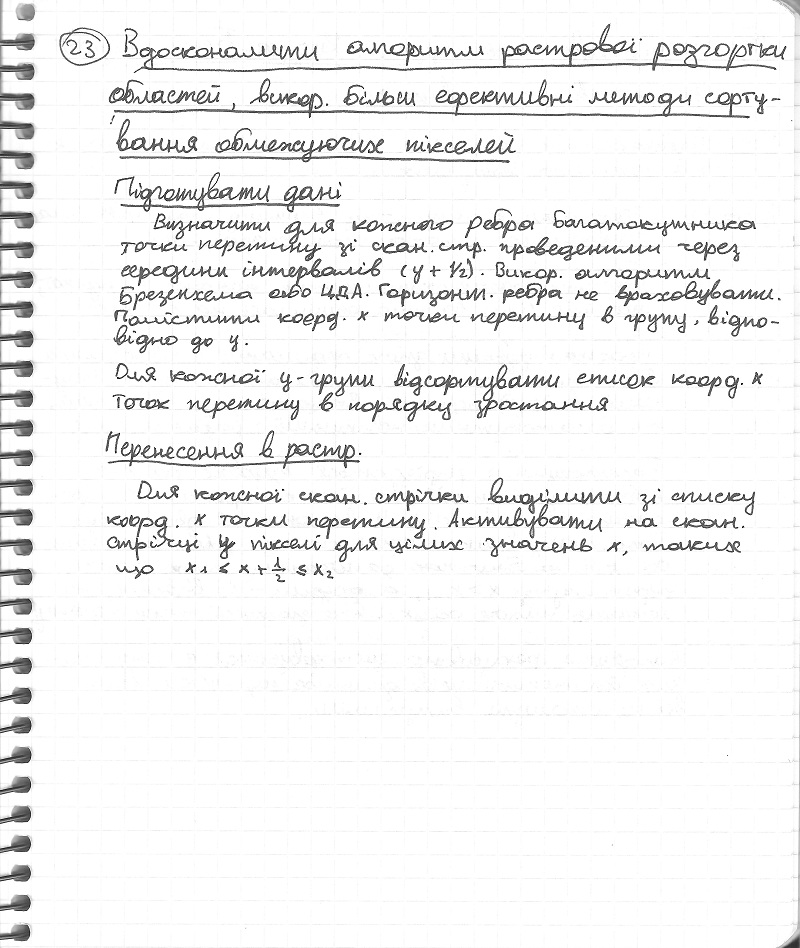 23 Вдосконалити алгоритм растрової розгортки
областей, викор. більш ефективні методи сорту-
вання обмежуючих пікселей
Підготувати дані
Визначити для кожного ребра багатокутника
точки перетину зі скан. стр. проведеними через
середини інтервалів (y + 1/2). Викор. алгоритм
Брезенхема або ЦДА. Горизонт. ребра не враховувати.
Помістити коорд. x точки перетину в групу, відпо-
відно до y.
Для кожної y-групи відсортувати список коорд. x
точок перетину в порядку зростання
Перенесення в растр.
Для кожної скан. стрічки виділити зі списку
коорд. x точки перетину. Активувати на скан.
стрічці y пікселі для цілих значень x, таких
що x₁ ≤ x + 1/2 ≤ x₂